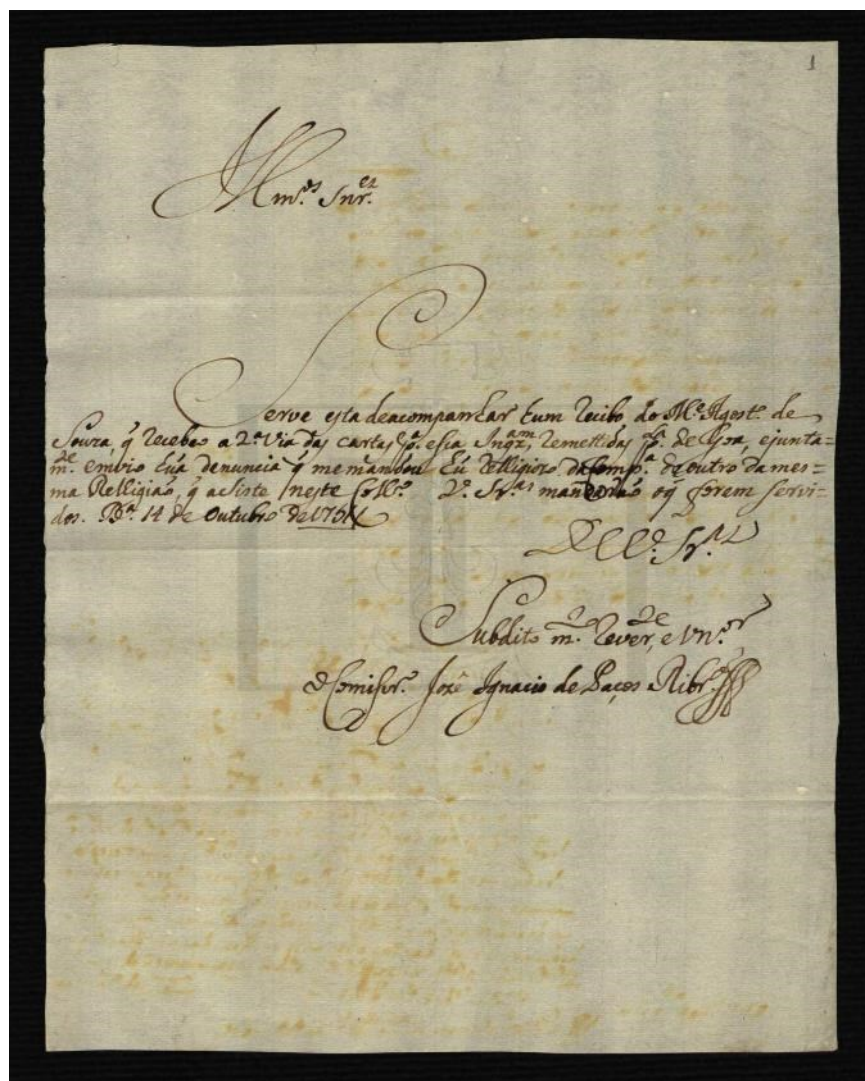 1
Illm.ºs Snr.es
Serve esta deacompanhar hum Recibo do M.e Agost.º de
Souza, q̃ recebeo a 2.ª via das cartas p.ª essa Inq.am, remettidas p.ª de Goa, ejunta-
m.te envio hũa denuncia q̃ memandou hũ Relligiozo daComp.ª de outro dames=
ma Relligiaõ, q̃ asiste neste Coll.º V. Sr.as mandaraõ oq̃ forem servi-
dos. B.ª 14 de Outubro de 1751
De V. Sr.as
Subdito m.to Rever.e
o Comisr.º Jozê Ignacio de Paços Ribr.º